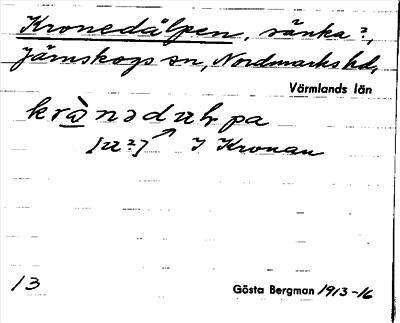 Kronedälpen, sänka?,
Jämskogs sn, Nordmarks hd,
Värmlands län
krὼnəduḷpa
[u?] ↗ I Kronan
13 Gösta Bergman 1913-16